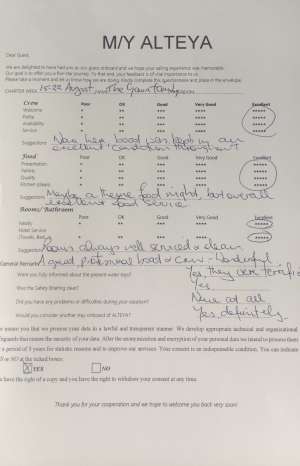 M/Y ALTEYA
Dear Guest,
We are delighted to have had you as our guest onboard and we hope your sailing experience was memorable.
Our goal is to offer you the journey. To that end, your feedback is of vital importance to us.
Please take a moment and let us know how we are doing. Kindly complete this questionnaire and place in the envelope.
CHARTER WEEK 15-22 August The Grant Family
Crew Poor OK Good Very Good Excellent
Welcome * ** *** **** *****
Polite * ** *** **** *****
Availability * ** *** **** *****
Service * ** *** **** *****
Suggestions: boat kept in an
excellent condition throughout
Food Poor OK Good Very Good Excellent
Presentation * ** *** **** *****
Serving * ** *** **** *****
Quality * ** *** **** *****
Kitchen pleats * ** *** **** *****
Suggestions: Maybe a theme food night, but overall
excellent food service
Rooms/ Bathroom
Poor OK Good Very Good Excellent
Neatly * ** *** **** *****
Hotel Service
(Towels, Bed) * ** *** **** *****
Suggestions: Rooms always well serviced & clean
General Remarks: A good professional boat & crew - wonderful
Were you fully informed about the present water toys? Yes, they were terrific
Was the Safety Briefing clear? Yes
Did you have any problems or difficulties during your vacation? None at all
Would you consider another stay onboard of ALTEYA? Yes, definitely
e ensure you that we process your data in a lawful and transparent manner. We develop appropriate technical and organizational
feguards that ensure the security of your data. After the anonymization and encryption of your personal data we intend to process them
a period of 5 years for statistic reasons and to improve our services. Your consent is an indispensable condition. You can indicate
ES or NO at the ticked boxes:
X YES NO
u have the right of a copy and you have the right to withdraw your consent at any time.
Thank you for your cooperation and we hope to welcome you back very soon!